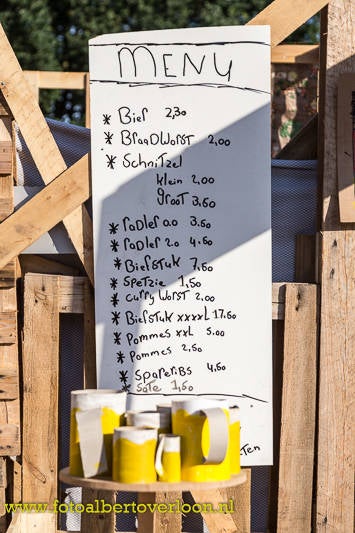 MENU
* Bier 2,30
* BraaDWorst 2,00
* Schnitzel
klein 2,00
groot 3,50
* raDler 0.0 3,50
* raDler 2.0 4,50
* Biefstuk 7,50
* Spetzie 1,50
* Curry Worst 2,00
* Biefstuk xxxxL 17,50
* Pommes xxL 5,00
* Pommes 2,50
* Spareribs 4,50
* Sate 1,50
www.fotoalbertoverloon.nl